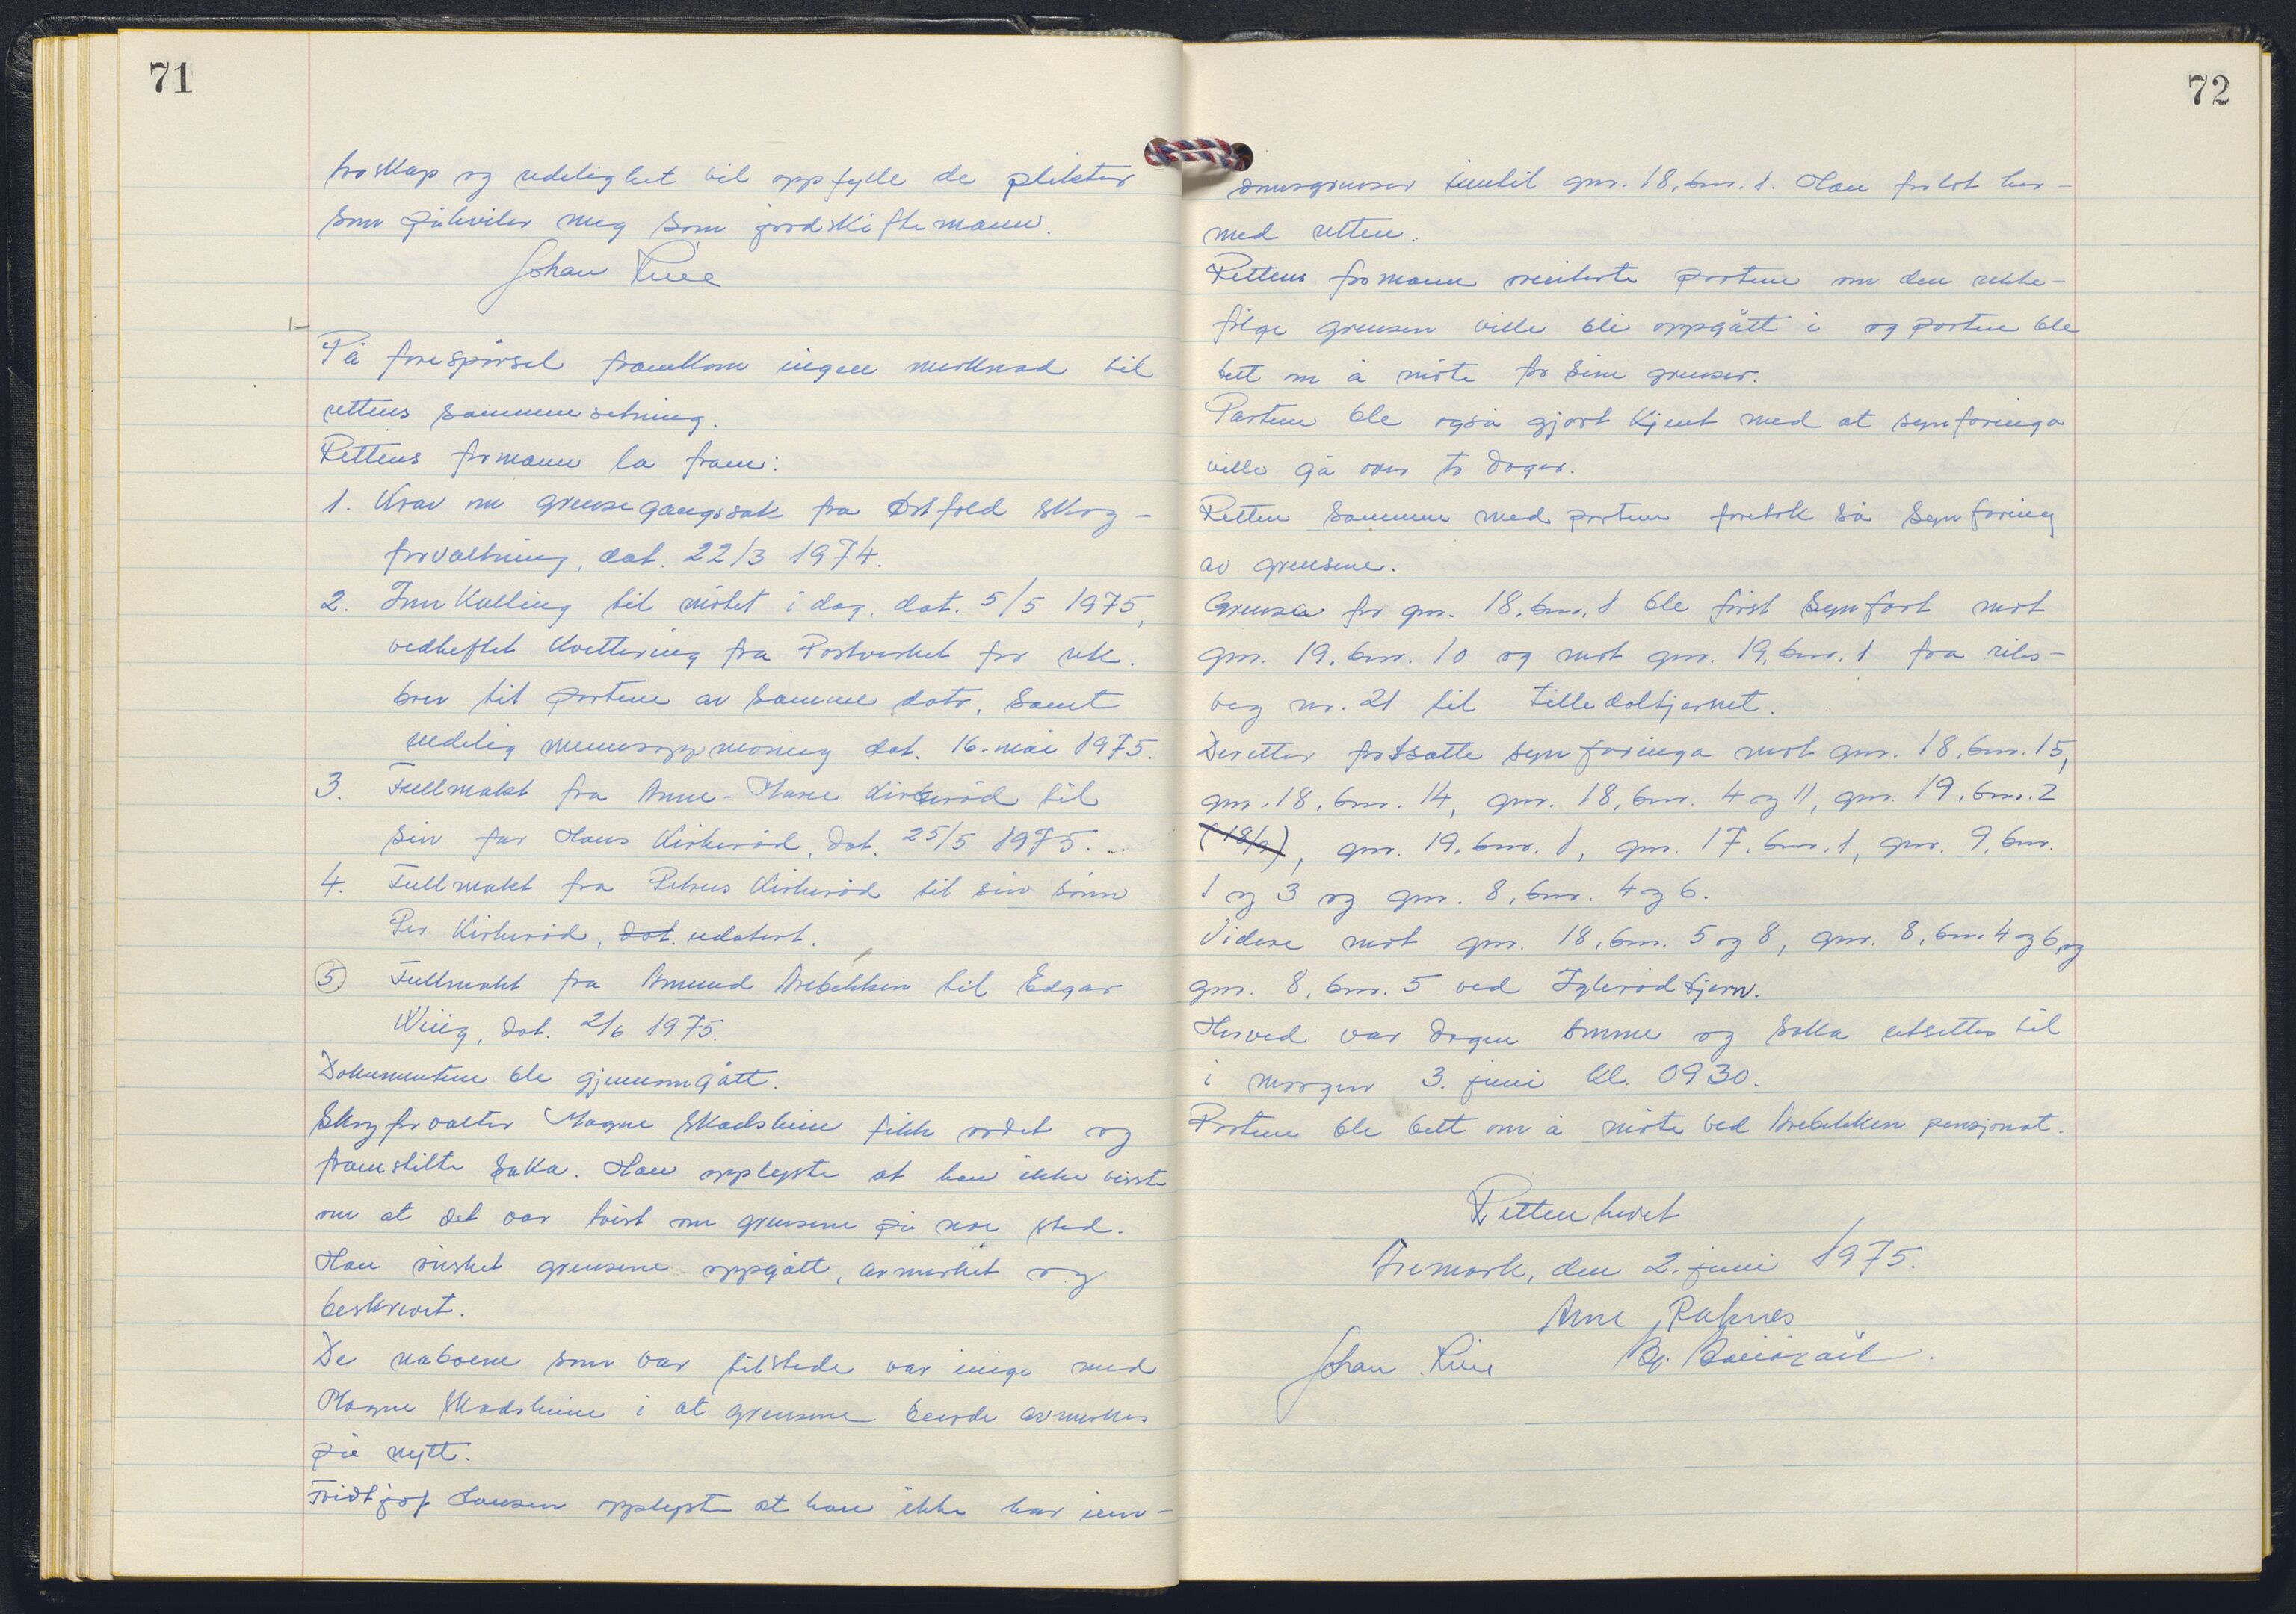 71
troskap og redelighet vil oppfylle de plikter
som påhviler meg som jordskiftemann.
Johan
På forespørsel framkom ingen merknad til
rettens sammensetning.
Rettens formann la fram:
1. Krav om grensegangssak fra Østfold skog-
forvaltning, dat. 22/3 1974.
2. Innkalling til møtet i dag, dat. 5/5 1975,
vedheftet kvittering fra Postverket for rek.
brev til partene av samme dato, samt
endelig dat. 16. mai 1975.
3. Fullmakt fra Anne-Marie Kirkerød til
sin far Hans Kirkerød, dat. 25/5 1975.
4. Fullmakt fra Petrus Kirkerød til sin sønn
Per Kirkerød, dat. udatert.
5 Fullmakt fra Amund Arebekken til Edgar
Wiig, dat. 2/6 1975.
Dokumentene ble gjennomgått.
Skogforvalter Magne Skadsheim fikk ordet og
framstilte saka. Han opplyste at han ikke visste
om at det var tvist om grensene på noe sted.
Han ønsket grensene oppgått, avmerket og
beskrevet.
De naboene som var tilstede var enige med
Magne Skadsheim i at grensene burde avmerkes
på nytt.
Fridtjof Hansen opplyste at han ikke har inn-
72
inntil gnr. 18, bnr. 1. Han forlot her-
med retten.
Rettens formann orienterte partene om den rekke-
følge grensen ville bli oppgått i og partene ble
bett om å møte for sine grenser.
Partene ble også gjort kjent med at synfaringa
ville gå over to dager.
Retten sammen med partene foretok så synfaring
av grensene.
Grensa for gnr. 18, bnr. 1 ble først synfart mot
gnr. 19, bnr. 10 og mot gnr. 19, bnr. 1 fra riks-
veg nr. 21 til Tilledaltjernet.
Deretter fortsatte synfaringa mot gnr. 18, bnr. 15,
gnr. 18, bnr. 14, gnr. 18, bnr. 4 og 11, gnr. 19, bnr. 2
, gnr. 19, bnr. 1, gnr. 17, bnr. 1, gnr. 9, bnr.
1 og 3 og gnr. 8, bnr. 4 og 6.
Videre mot gnr. 18, bnr. 5 og 8, gnr. 8, bnr. 4 og 6 og
gnr. 8, bnr. 5 ved Iglerødtjern.
Herved var dagen omme og saka utsettes til
i morgen 3. juni kl. 0930.
Partene ble bett om å møte ved Arebekken pensjonat.
Retten hevet
Aremark, den 2. juni 1975.
Arne Raknes
Johan